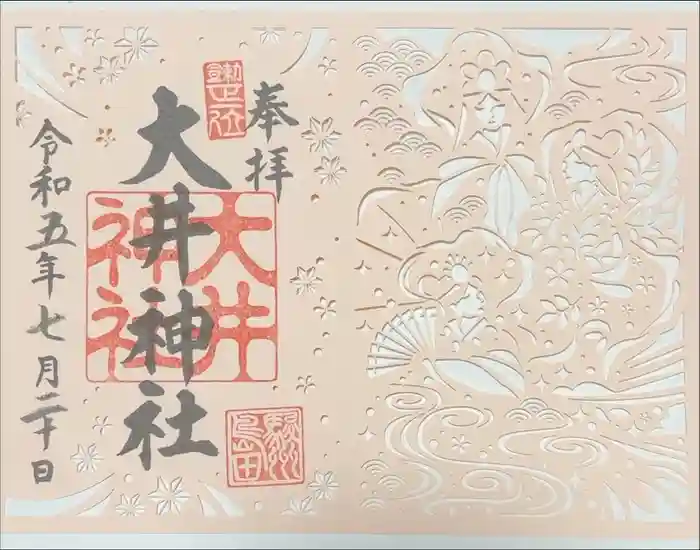 奉拝
大井神社
大井
神社
駿州
島田
令和五年七月二十日